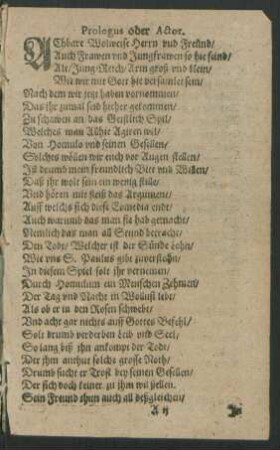 Prologus oder Actor.
Achbare Wolweise Herrn vnd Freund/
Auch Frawen vnd Jungfrawen so hie seind/
Alt/ Jung/ Reich/ Arm groß vnd klein/
Wie wir mit Gott hie versamlet sein/
Nach dem wir jetzt haben vernommen/
Das jhr zumal seid hieher gekommen/
Zu schawen an das Geistlich Spil/
Welches man Alhie Agiren wil/
Von Homulo vnd seinen Gesellen/
Solches wöllen wir euch vor Augen stellen/
Ist drumb mein freundlich Bitt vnd Willen/
Daß jhr wolt sein ein wenig stille/
Vnd hören mit fleiß das Argument/
Auff welchs sich diese Comedia endt/
Auch warumb das man sie hab gemacht/
Nemlich das man all Stund betracht/
Den Todt/ Welcher ist der Sünde lohn/
Wie vns S. Paulus gibt zuverstehn/
In diesem Spiel solt jhr vernemen/
Durch Homulum ein Menschen
Der Tag vnd Nacht in Wollust lebt/
Als ob er in den Rosen schwebt/
Vnd acht gar nichts auff Gottes Befehl/
Solt drumb verderben Leib vnd Seel/
So lang biß jhn ankompt der Todt/
Der jhm anthut solche grosse Noth/
Drumb sucht er Trost bey seinen Gesellen/
Der sich doch keiner zu jhm wil stellen.
Sein Freund thun auch all deßgleichen/
A ij